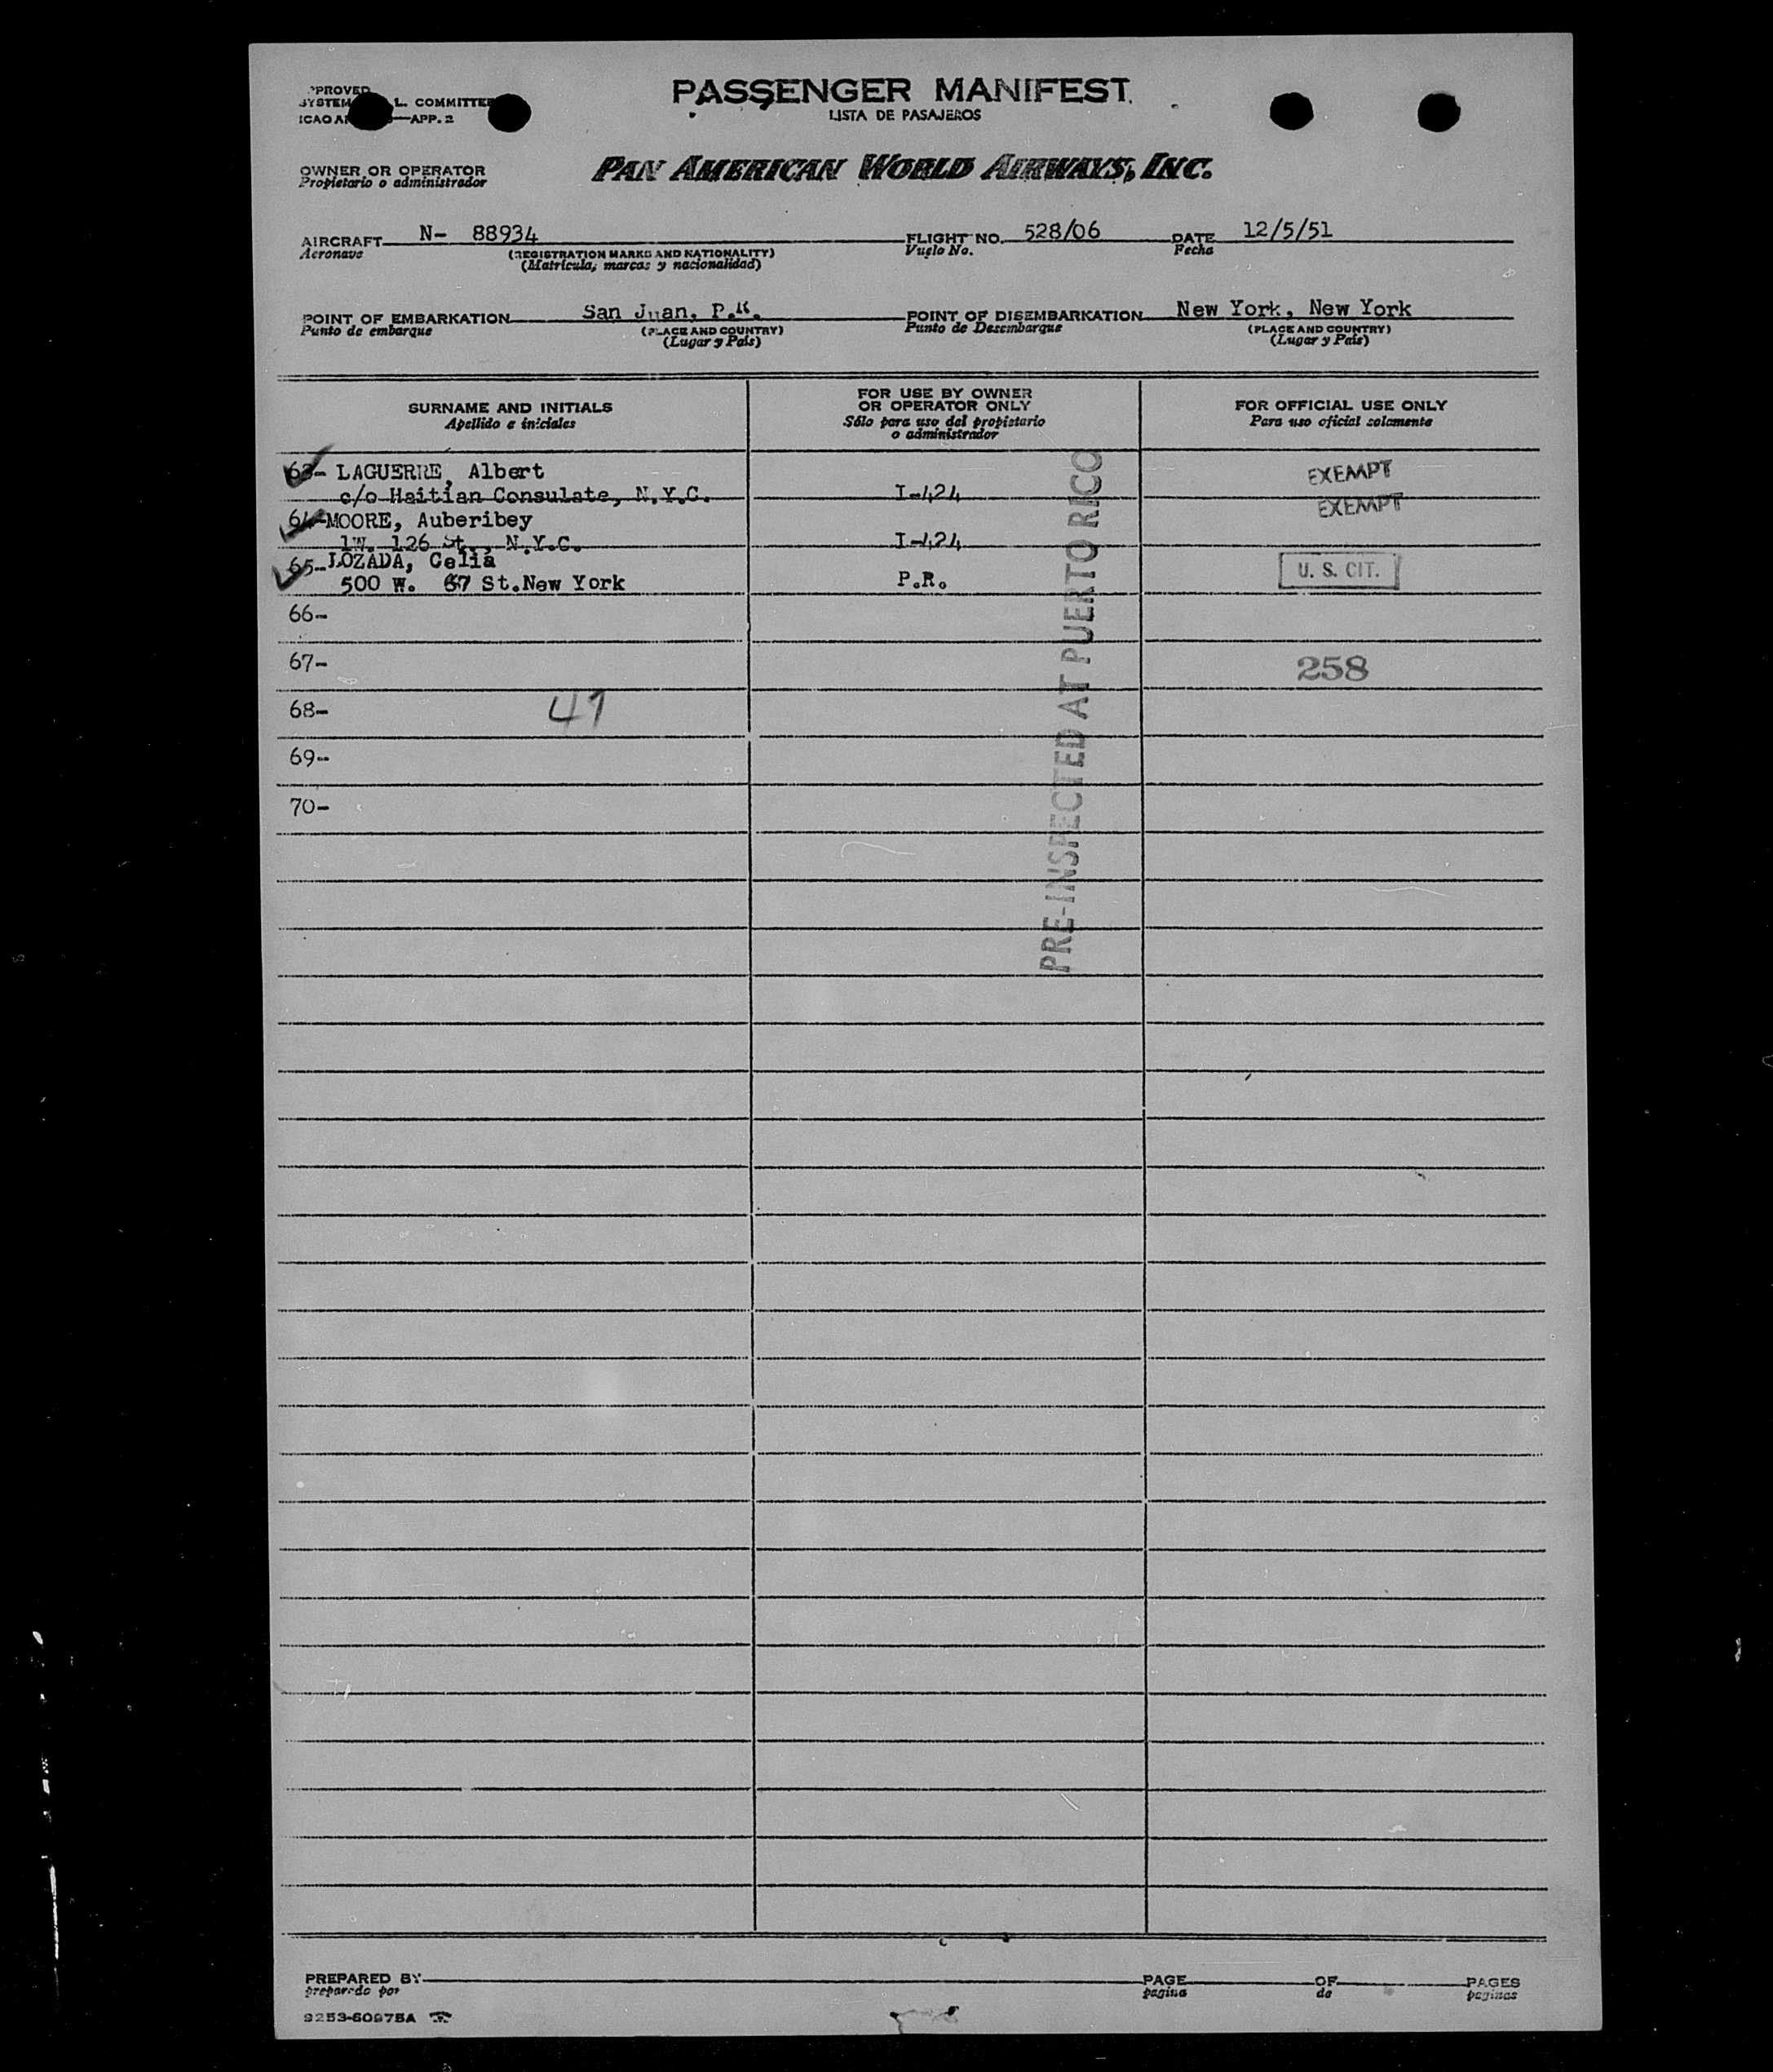 PASSENGER MANIFEST
LISTA DE PASAJEROS
L. COMMITTEE
APP. 2
OWNER OR OPERATOR
Propietario o administrador
PAN AMERICAN WORLD AIRWAYS, INC.
AIRCRAFT N- 88934 FLIGHT NO. 528/06 DATE 12/5/51
Aeronave (REGISTRATION MARKS AND NATIONALITY) Vuelo No. Fecha
(Matricula, marcas y nacionalidad)
POINT OF EMBARKATION San Juan, P.R. POINT OF DISEMBARKATION New York, New York
Punto de embarque (PLACE AND COUNTRY) Punto de Desembarque (PLACE AND COUNTRY)
(Lugar y País) (Lugar y País)
SURNAME AND INITIALS
Apellido e iniciales
FOR USE BY OWNER
OR OPERATOR ONLY
Sólo para uso del propietario
o administrador
FOR OFFICIAL USE ONLY
Para uso oficial solamente
63- LAGUERRE, Albert EXEMPT
c/o Haitian Consulate, N.Y.C. I-424
64-MOORE, Auberibey EXEMPT
1W. 126 St., N.Y.C. I-424
65-LOZADA, Celia
500 W. 67 St.New York P.R. U. S. CIT.
66-
67- 258
68- 41
69-
70-
PRE-INSPECTED AT PUERTO RICO
PREPARED BY PAGE OF PAGES
preparado por pagina de paginas
9253-60975A